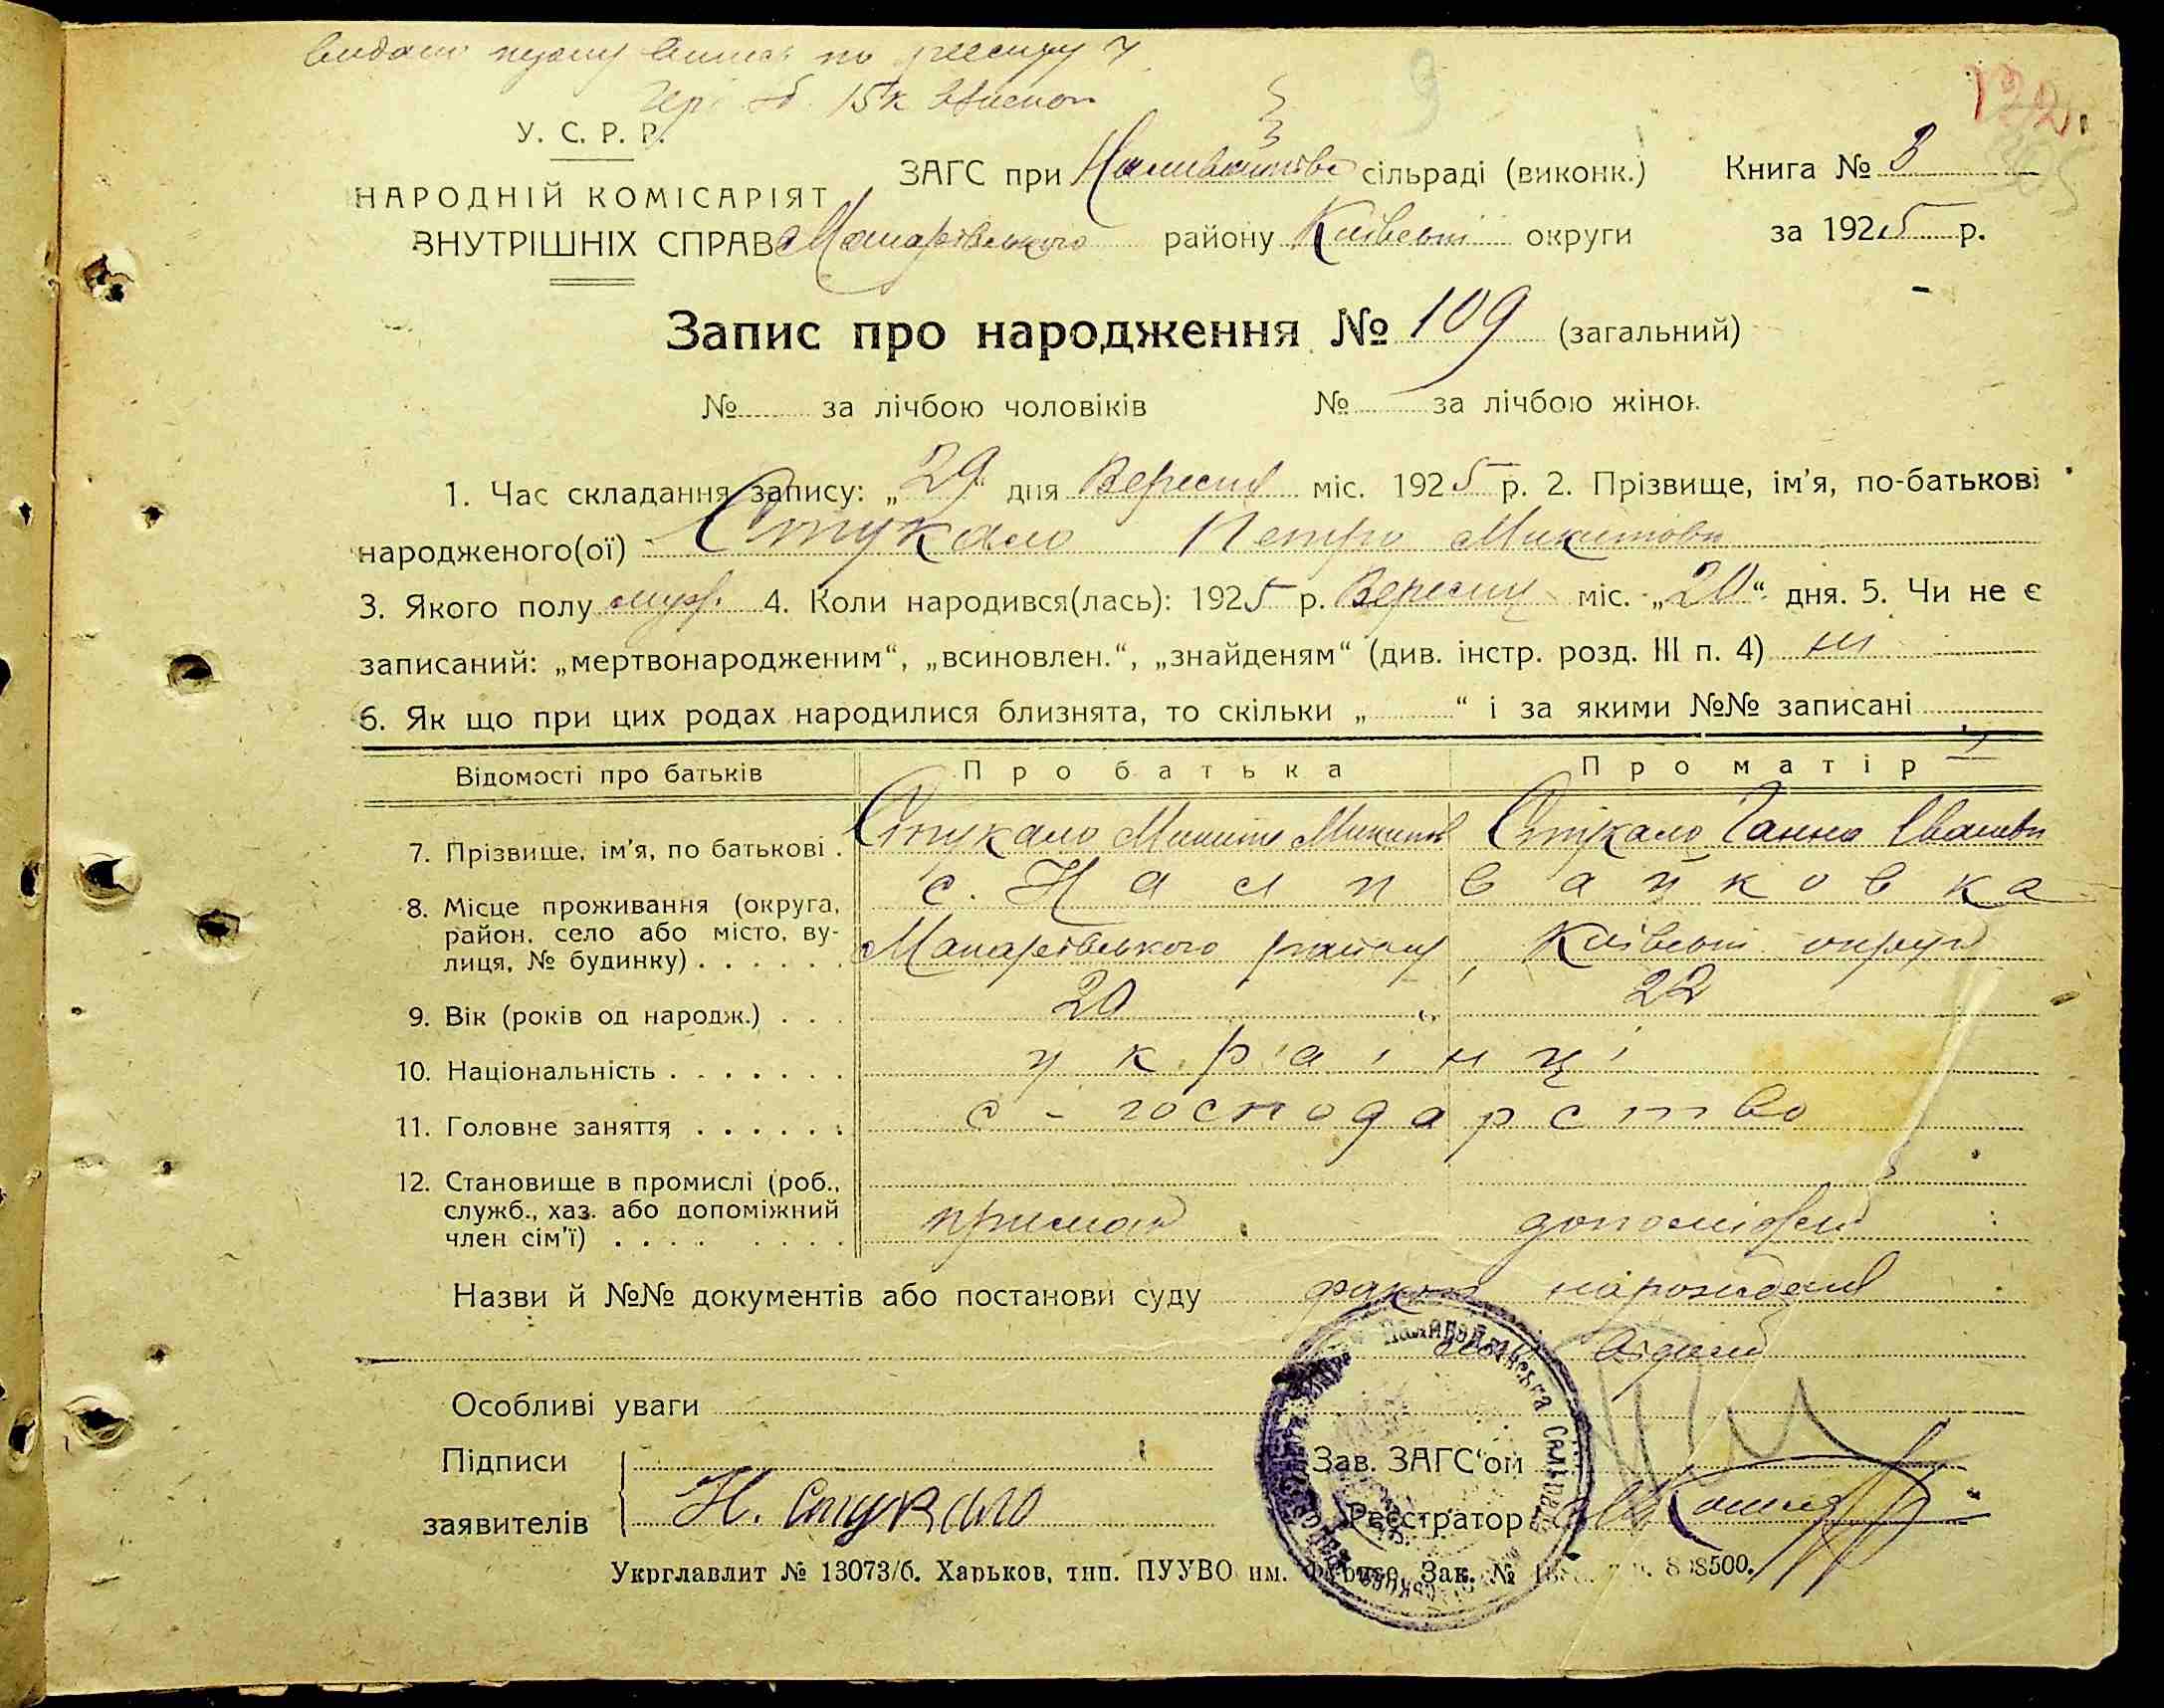 видано першу випись по
15 к
122.
У. С. Р. Р.
НАРОДНІЙ КОМІСАРІЯТ
ВНУТРІШНІХ СПРАВ
ЗАГС при Наливайківс сільраді (виконк.) Книга № 3
Макарівського району Київськ округи за 1925 р.
Запис про народження № 109 (загальний)
№ за лічбою чоловіків № за лічбою жінок
1. Час складання запису: „29“ дня Вересня міс. 1925 р. 2. Прізвище, ім'я, по-батькові
народженого(ої) Стукало Петро Микитови
3. Якого полу муж. 4. Коли народився(лась): 1925 р. Вересня міс. „20“ дня. 5. Чи не є
записаний: „мертвонародженим“, „всиновлен.“, „знайденям“ (див. інстр. розд. III п. 4) ні
6. Як що при цих родах народилися близнята, то скільки „ “ і за якими №№ записані
Відомості про батьків Про батька Про матір
7. Прізвище, ім'я, по батькові . Стукало Микита Микитов Стукало Ганна Іванівн
8. Місце проживання (округа, с. Наливайковка
район, село або місто, ву-
лиця, № будинку) . . . . . . Макарівського району, Київськ округи
9. Вік (років од народж.) . . . 20 22
10. Національність . . . . . . . українці
11. Головне заняття . . . . . . с-господарство
12. Становище в промислі (роб.,
служб., хаз. або допоміжний
член сім'ї) . . . . . . . . приймак допоміжн
Назви й №№ документів або постанови суду факт народження
Особливі уваги
Підписи
заявителів Н. Стукало
Зав. ЗАГС'ом
Реєстратор
Укрглавлит № 13073/6. Харьков, тип. ПУУВО им. Фрунзе. Зак. №